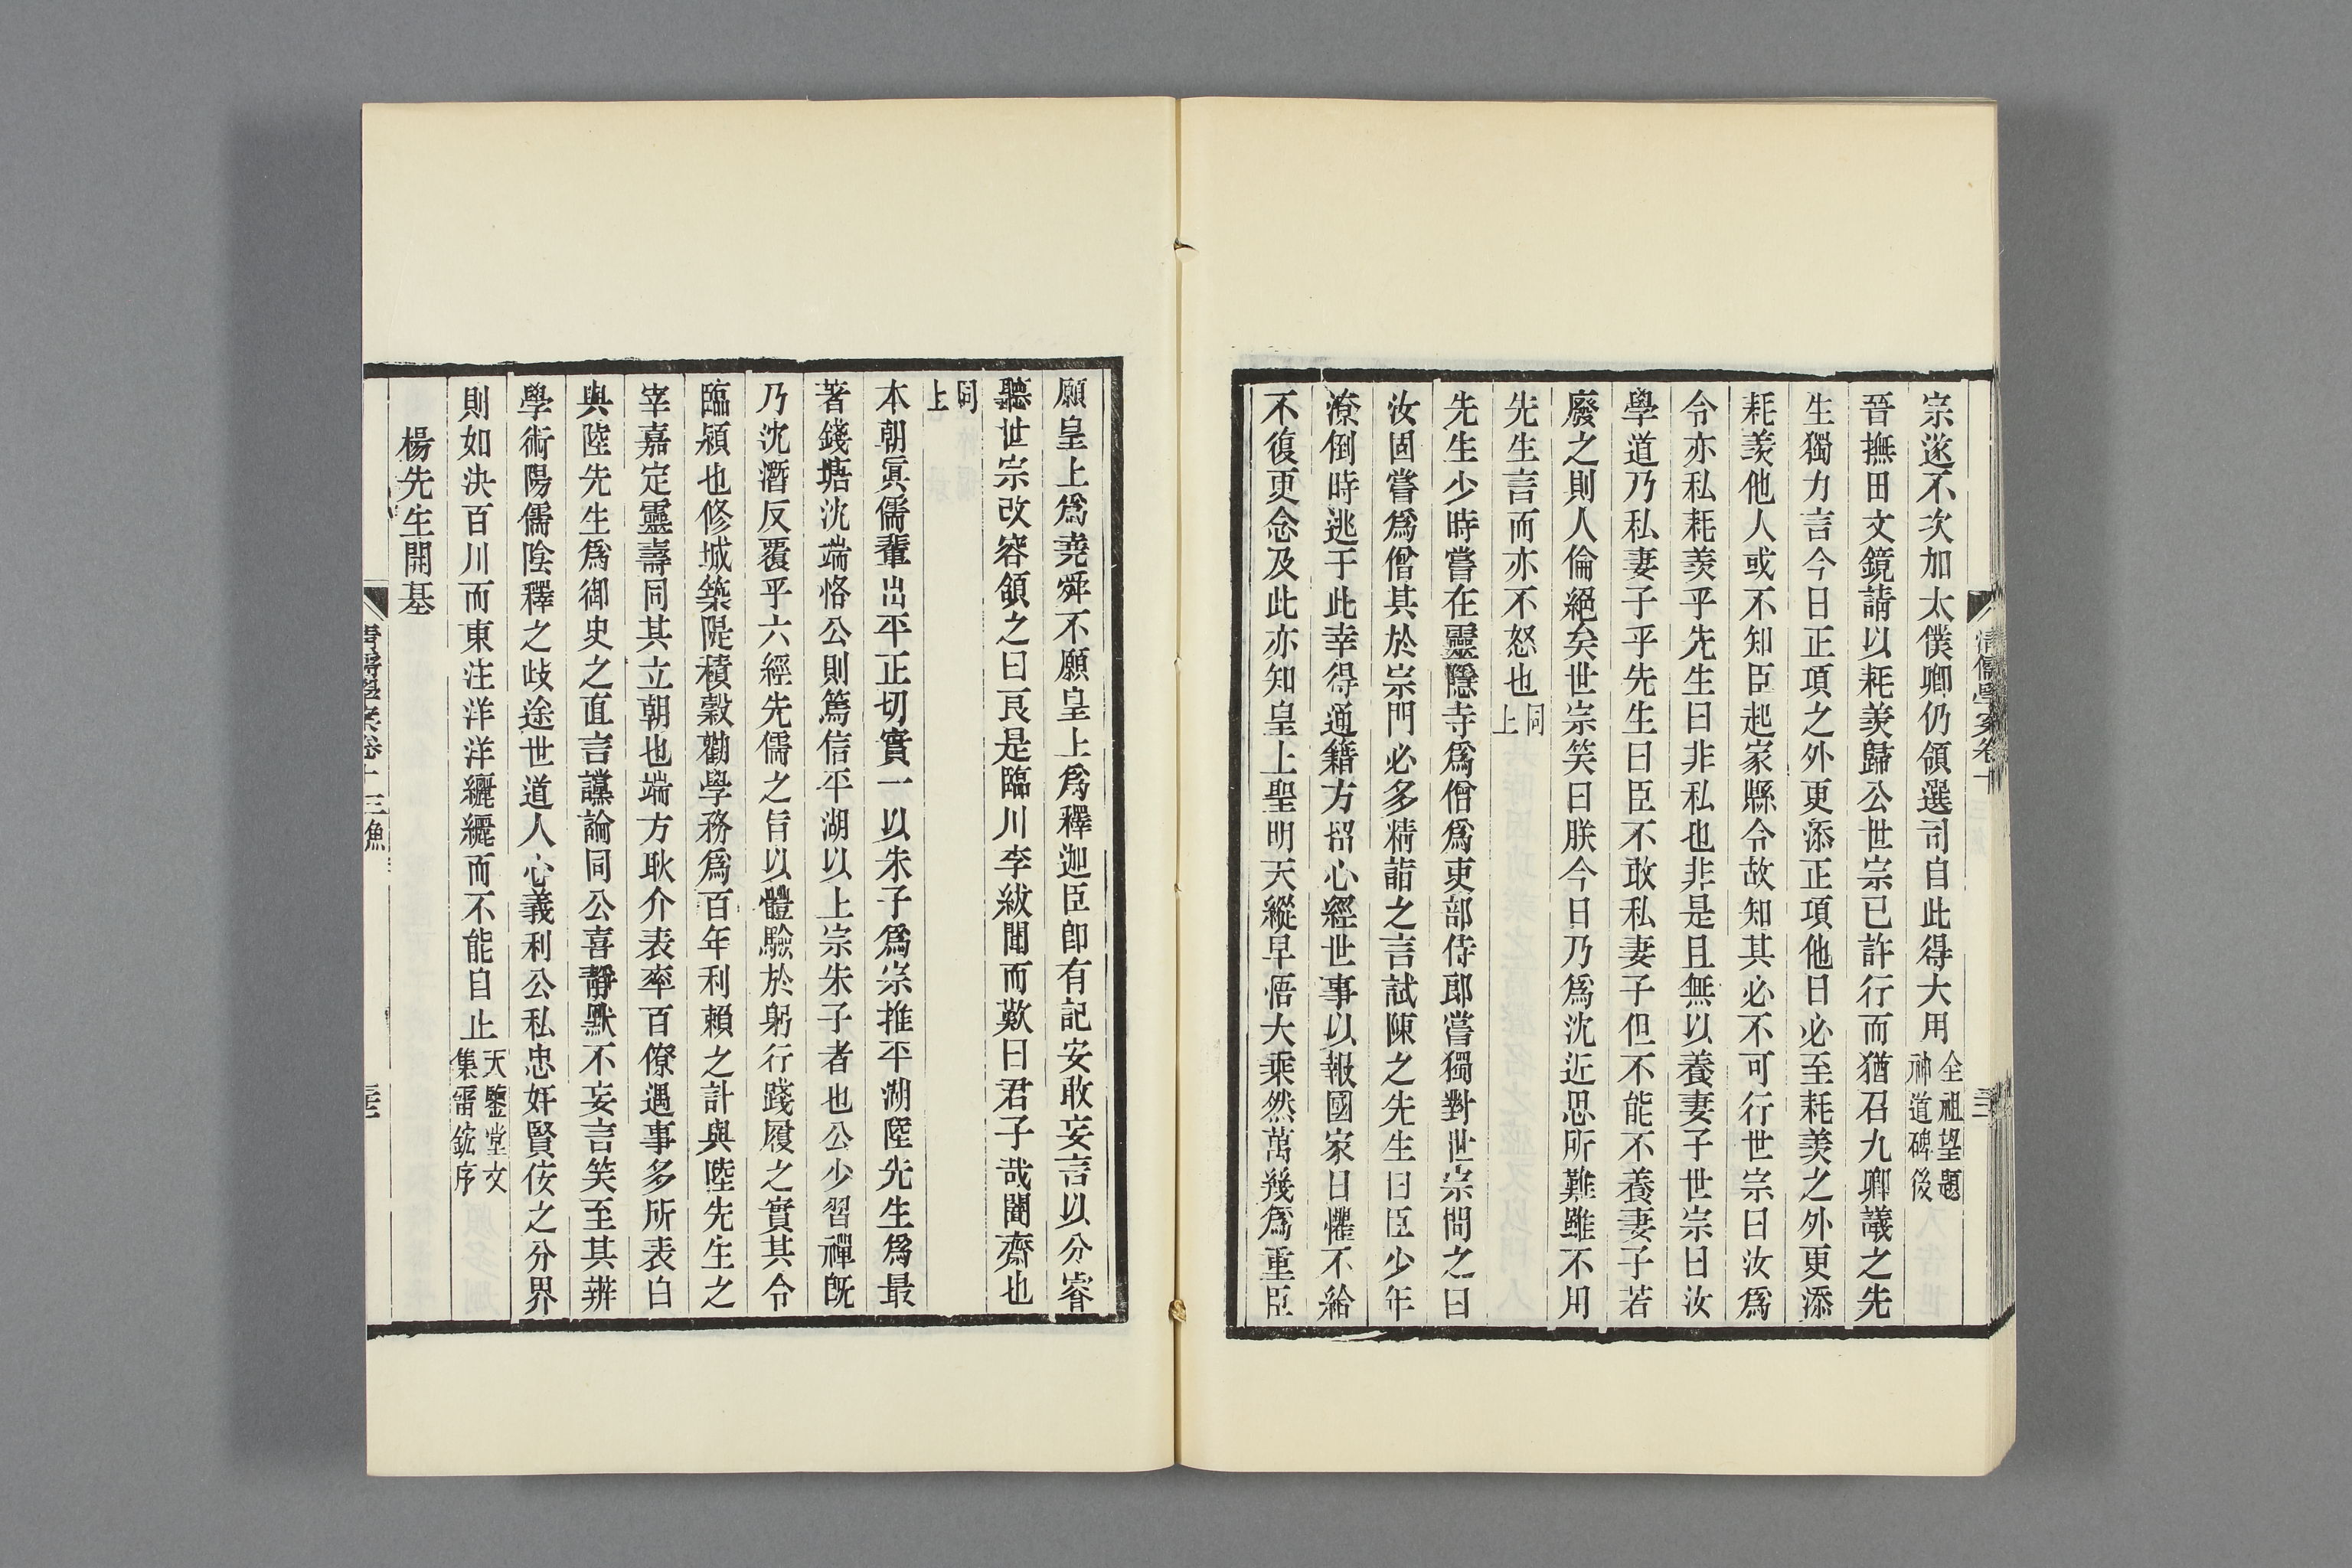 宗遂不次加太僕卿仍領選司自此得大用全祖望題神道碑後
晉撫田文鏡請以耗羨歸公世宗已許行而猶召九卿議之先
生獨力言今日正項之外更添正項他日必至耗羨之外更添
耗羨他人或不知臣起家縣令故知其必不可行世宗曰汝爲
令亦私耗羨乎先生曰非私也非是且無以養妻子世宗曰汝
學道乃私妻子乎先生曰臣不敢私妻子但不能不養妻子若
廢之則人倫絕矣世宗笑曰朕今日乃爲沈近思所難雖不用
先生言而亦不怒也同上
先生少時嘗在靈隱寺爲僧爲吏部侍郎嘗獨對世宗問之曰
汝固嘗爲僧其於宗門必多精詣之言試陳之先生曰臣少年
潦倒時逃于此幸得通籍方留心經世事以報國家日懼不給
不復更念及此亦知皇上聖明天縱早悟大乘然萬幾爲重臣
清儒學案卷十
願皇上爲堯舜不願皇上爲釋迦臣卽有記安敢妄言以分睿
聽世宗改容頷之曰良是臨川李紱聞而歎曰君子哉闇齋也
同上
本朝眞儒輩出平正切實一以朱子爲宗推平湖陸先生爲最
著錢塘沈端恪公則篤信平湖以上宗朱子者也公少習禪旣
乃沈潛反覆乎六經先儒之旨以體驗於躬行踐履之實其令
臨潁也修城築隄積穀勸學務爲百年利賴之計與陸先生之
宰嘉定靈壽同其立朝也端方耿介表率百僚遇事多所表白
與陸先生爲御史之直言讜論同公喜靜默不妄言笑至其辨
學術陽儒陰釋之歧途世道人心義利公私忠奸賢佞之分界
則如決百川而東注洋洋纚纚而不能自止天鑒堂文集雷鋐序
楊先生開基
清儒學案卷十 三魚